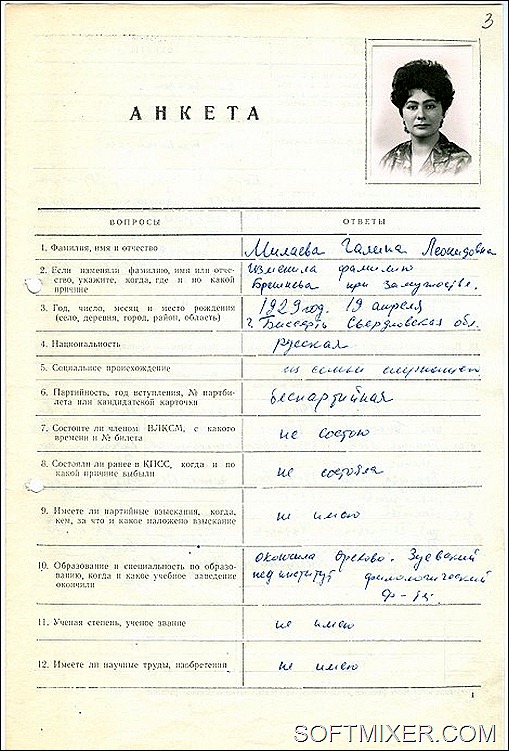 3
АНКЕТА
ВОПРОСЫ
ОТВЕТЫ
1. Фамилия, имя и отчество
Милаева Галина Леонидовна
2. Если изменяли фамилию, имя или отче-
ство, укажите, когда, где и по какой
причине
Изменила фамилию
Брежнева при замужестве.
3. Год, число, месяц и место рождения
(село, деревня, город, район, область)
1929 год. 19 апреля
г. Бисерть Свердловская обл.
4. Национальность
русская
5. Социальное происхождение
из семьи служащего
6. Партийность, год вступления, № партби-
лета или кандидатской карточки
беспартийная
7. Состоите ли членом ВЛКСМ, с какого
времени и № билета
не состою
8. Состояли ли ранее в КПСС, когда и по
какой причине выбыли
не состояла
9. Имеете ли партийные взыскания, когда,
кем, за что и какое наложено взыскание
не имею
10. Образование и специальность по образо-
ванию, когда и какое учебное заведение
окончили
окончила Орехово-Зуевский
пединститут филологический
ф-т.
11. Ученая степень, ученое звание
не имею
12. Имеете ли научные труды, изобретения
не имею
1
SOFTMIXER.COM